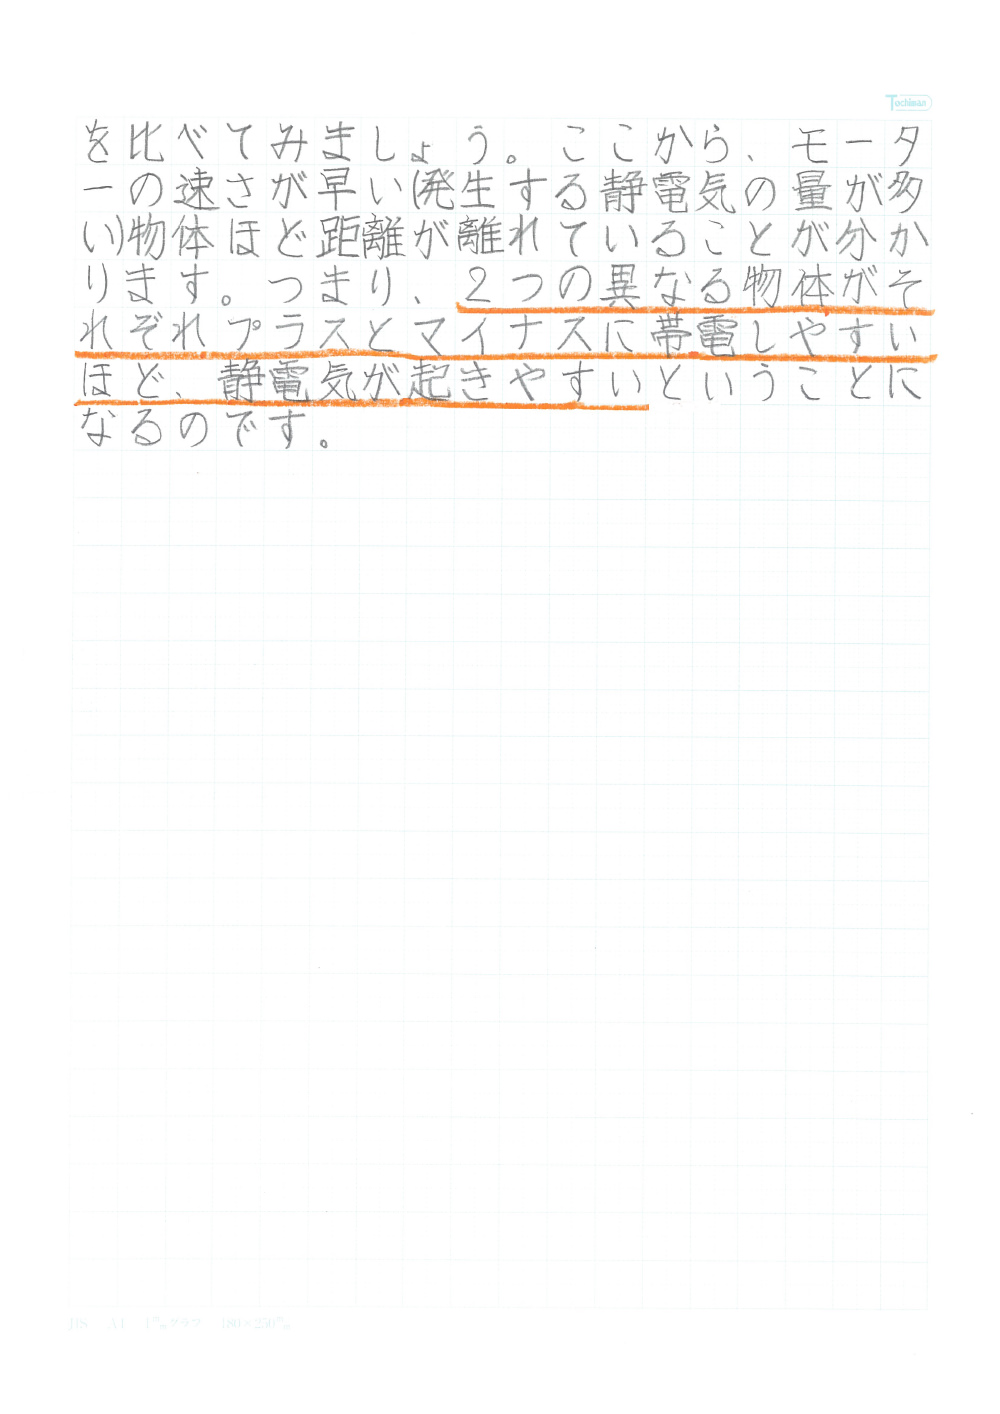 Tochiman
を比べてみましょう。ここから、モータ
ーの速さが早い(発生する静電気の量が多
い)物体ほど距離が離れていることが分か
ります。つまり、2つの異なる物体がそ
れぞれプラスとマイナスに帯電しやすい
ほど、静電気が起きやすいということに
なるのです。
JIS A4 1㎜グラフ 180×250㎜